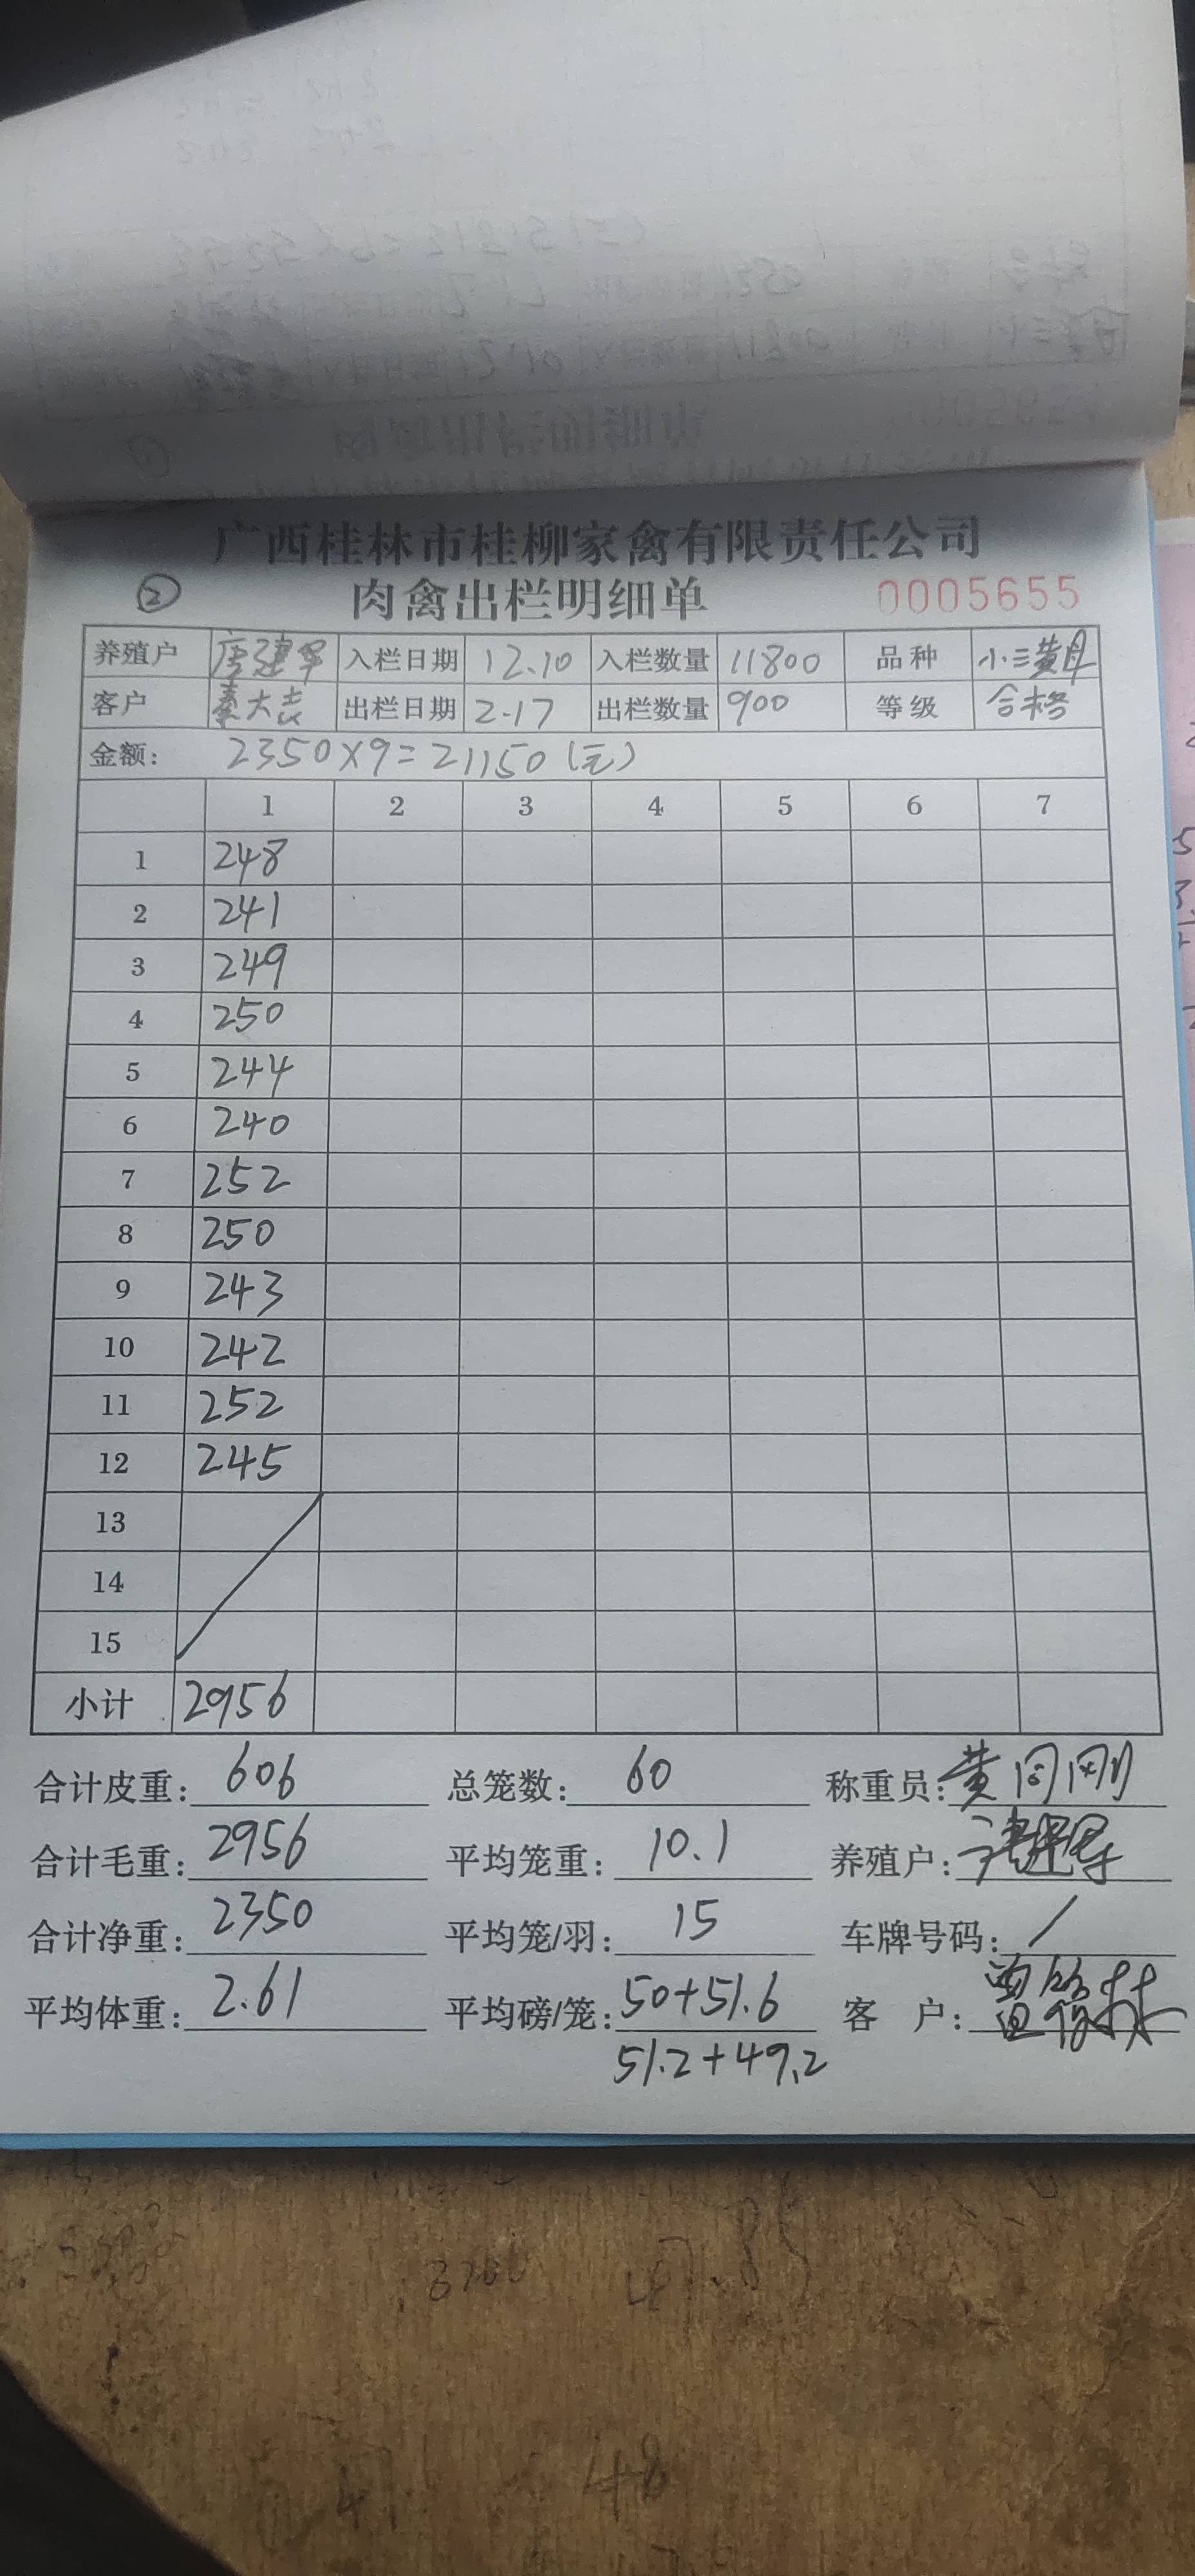 广西桂林市桂柳家禽有限责任公司
② 肉禽出栏明细单 0005655
养殖户 唐建军 入栏日期 12.10 入栏数量 11800 品种 小三黄母
客户 秦大志 出栏日期 2.17 出栏数量 900 等级 合格
金额: 2350×9=21150(元)
1 2 3 4 5 6 7
1 248
2 241
3 249
4 250
5 244
6 240
7 252
8 250
9 243
10 242
11 252
12 245
13
14
15
小计 2956
合计皮重: 606 总笼数: 60 称重员: 黄同刚
合计毛重: 2956 平均笼重: 10.1 养殖户:
合计净重: 2350 平均笼/羽: 15 车牌号码: /
平均体重: 2.61 平均磅/笼: 50+51.6 客 户:
51.2+49.2
48